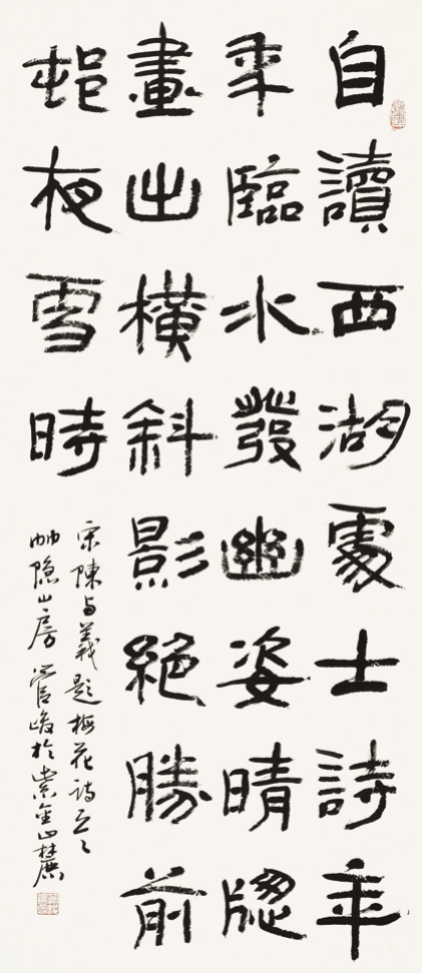 自讀西湖處士詩年
年臨水發幽姿晴牕
畫出橫斜影絕勝前
邨夜雪時
宋陳与義題梅花詩
隱山房管峻於紫金山麓